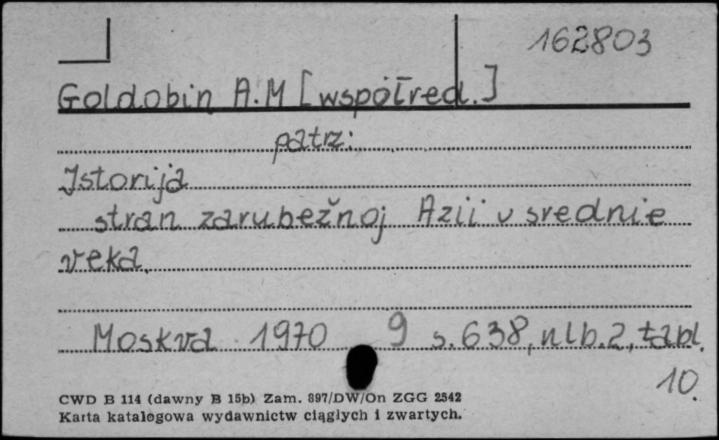 162803
Goldobin A.M [współred.]
patrz:
Istorija
stran zarubežnoj Azii v srednie
veka.
Moskva 1970 9 s.638, nlb.2, tabl.
10.
CWD B 114 (dawny B 15b) Zam. 897/DW/On ZGG 2542
Karta katalogowa wydawnictw ciągłych i zwartych.